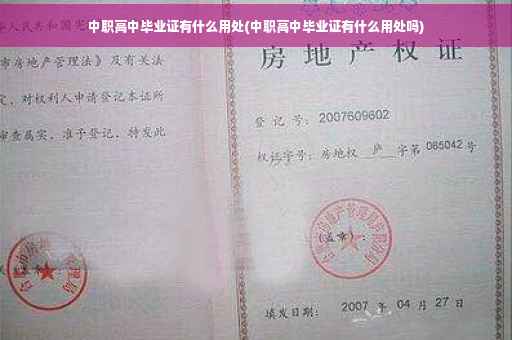 中职高中毕业证有什么用处(中职高中毕业证有什么用处吗)
华人民共和国宪
市房地产管理法》及有关法
定，对权利人申请登记本证所
审查属实，准予登记，特发此
房地产权证
登记号：2007609602
权证字号：房地权 庐 字第 065042 号
(盖章)：
填发日期：2007 年 04 月 27 日